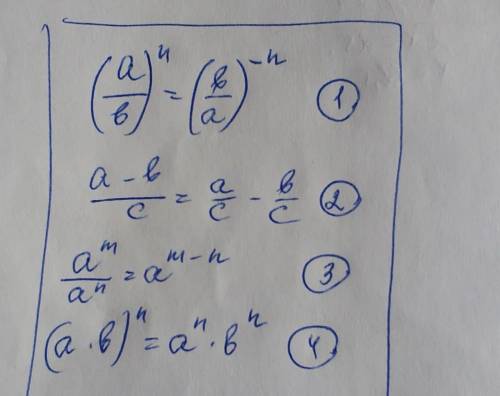 (a/b)^n = (b/a)^-n ①
(a - b)/c = a/c - b/c ②
a^m/a^n = a^m-n ③
(a · b)^n = a^n · b^n ④